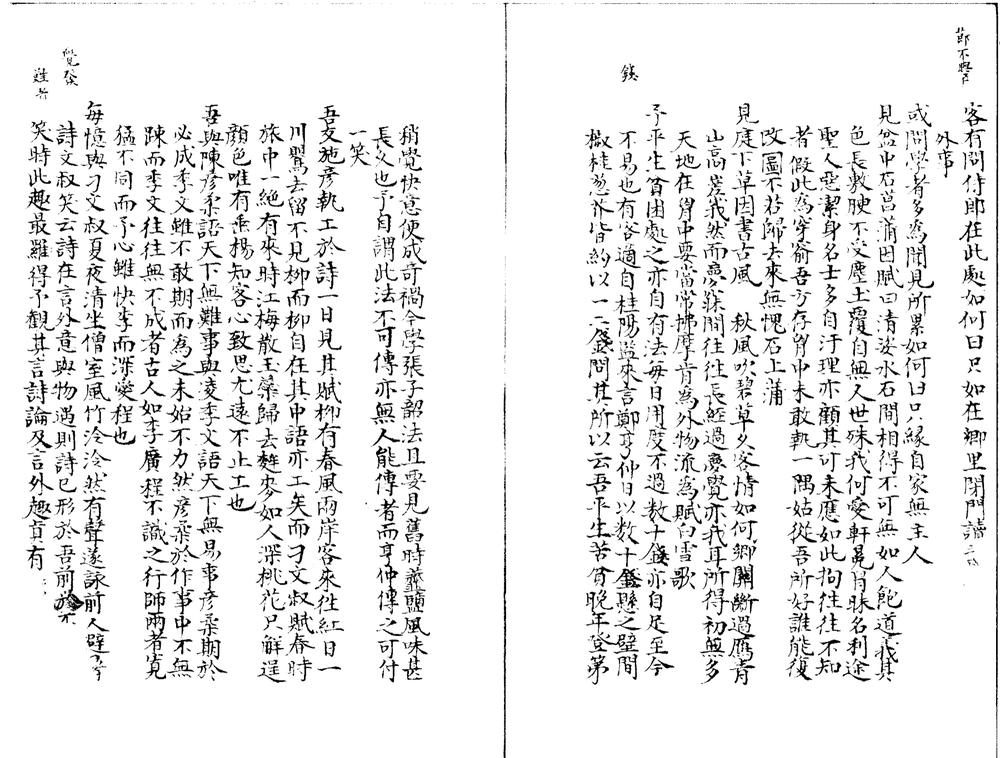 客有問侍郎在此處如何曰只如在鄉里閉門讀
外事
或問學者多為聞見所累如何曰只緣自家無主人
見盆中石菖蒲因賦曰清姿水石間相得不可無如人飽道義其
色長敷腴不受塵土覆自無人世殊我何愛軒冕肯昧名利途
聖人惡潔身名士多自汙理亦顧其可未應如此拘往往不知
者假此為穿窬吾方存胷中未敢執一隅姑從吾所好誰能復
改圖不若歸去來無愧石上蒲
見庭下草因書古風 秋風吹碧草夕客情如何鄉關斷過鴈青
山高嵳我然而夢寐間往往長經過夢覺亦我耳所得初無多
天地在胷中要當常拂摩肯為外物流為賦白雪歌
予平生貧困處之亦自有法每日用度不過數十錢亦自足至今
不易也有客適自桂陽監來言鄭亨仲日以數十錢懸之壁間
椒桂葱芥皆約以一二錢問其所以云吾平生苦貧晚年登第
稍覺快意便成奇禍今學張子韶法且要見舊時虀鹽風味甚
長久也予自謂此法不可傳亦無人能傳者而亨仲傳之可付
一笑
吾友施彥執工於詩一日見其賦柳有春風兩岸客來往紅日一
川鶯去留不見柳而柳自在其中語亦工矣而刁文叔賦春時
旅中一絕有來時江梅散玉蘂歸去麰麥如人深桃花只解逞
顏色唯有垂楊知客心致思尤遠不止工也
吾與陳彥柔語天下無難事與凌季文語天下無易事彥柔期於
必成季文雖不敢期而為之未始不力然彥柔於作事中不無
踈而季文往往無不成者古人如李廣程不識之行師兩者寬
猛不同而予心雖快李而深愛程也
每憶與刁文叔夏夜清坐僧室風竹泠泠然有聲遂詠前人
詩文叔笑云詩在言外意與物遇則詩已形於吾前
笑時此趣最難得予觀其言詩論及言外趣真有
錢